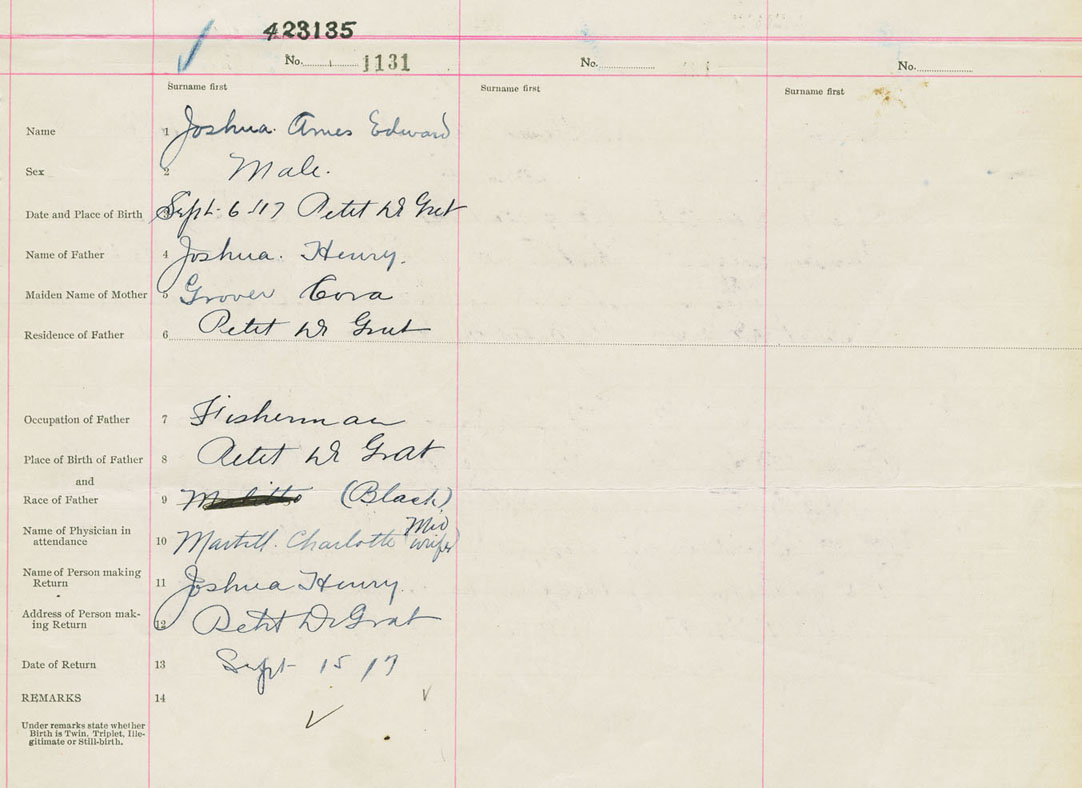 423135
No. 1131
No.
No.
Surname first
Surname first
Surname first
Name 1 Joshua. Ames Edward
Sex 2 Male.
Date and Place of Birth 3 Sept. 6 .17 Petit De Gret
Name of Father 4 Joshua. Henry.
Maiden Name of Mother 5 Grover Cora
Residence of Father 6 Petit De Grut
Occupation of Father 7 Fisherman
Place of Birth of Father 8 Petit De Grat
and
Race of Father 9 (Black)
Name of Physician in
attendance 10 Martell. Charlotte Mid
wife
Name of Person making
Return 11 Joshua Henry
Address of Person mak-
ing Return 12 Petit De Grat
Date of Return 13 Sept 15 17
REMARKS 14
Under remarks state whether
Birth is Twin, Triplet, Ille-
gitimate or Still-birth.